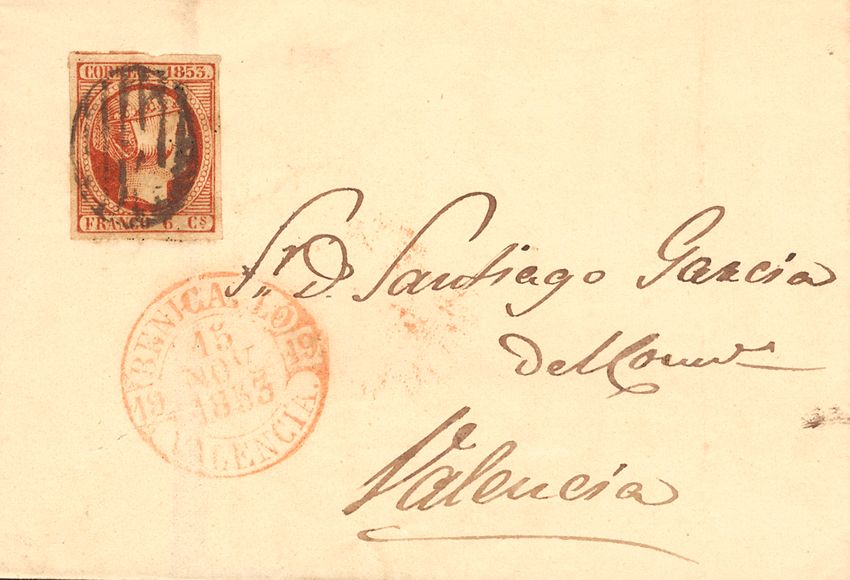 CORREOS 1853.
FRANCO 6. Cs
BENICARLO
15
NOV
1853
19 19
VALENCIA.
Sr. D. Santiago Garcia
del Comercio
Valencia